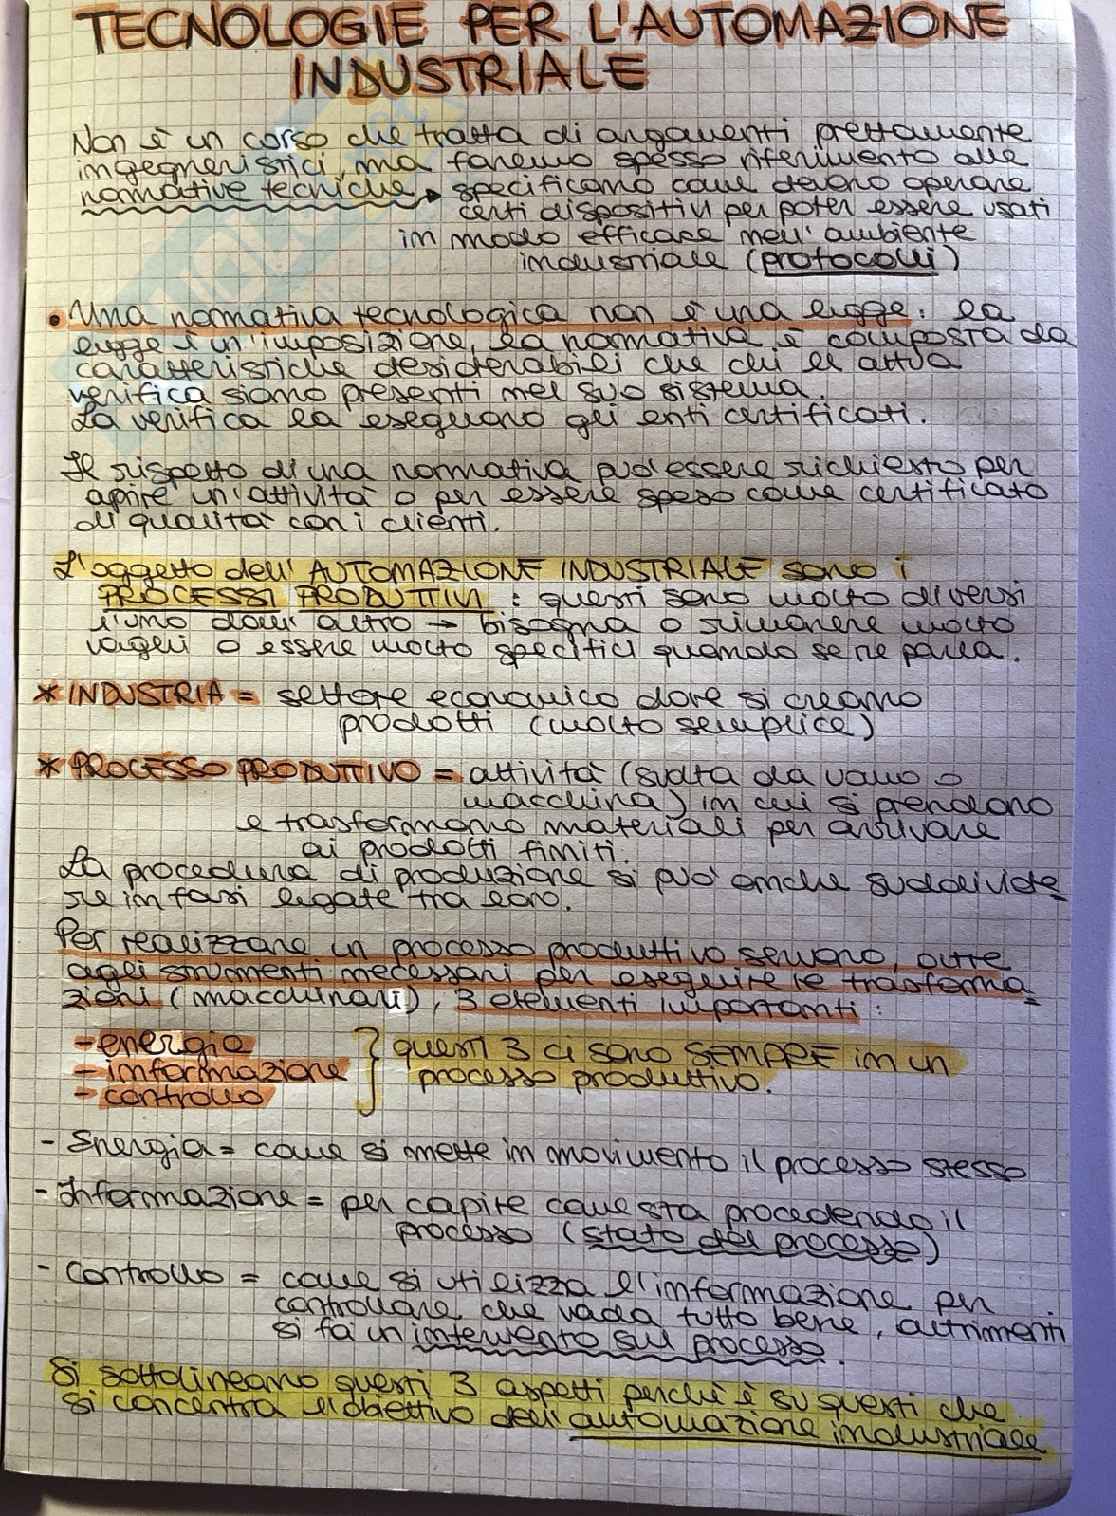 TECNOLOGIE PER L'AUTOMAZIONE
INDUSTRIALE
Non è un corso che tratta di argomenti prettamente
ingegneristici, ma faremo spesso riferimento alle
normative tecniche → specificano come devono operare
certi dispositivi per poter essere usati
in modo efficace nell'ambiente
industriale (protocolli)
• Una normativa tecnologica non è una legge: la
legge è un'imposizione, la normativa è composta da
caratteristiche desiderabili che chi le attua
verifica siano presenti nel suo sistema.
La verifica la eseguono gli enti certificati.
Il rispetto di una normativa può essere richiesto per
aprire un'attività o per essere speso come certificato
di qualità con i clienti.
L'oggetto dell'AUTOMAZIONE INDUSTRIALE sono i
PROCESSI PRODUTTIVI: questi sono molto diversi
l'uno dall'altro → bisogna o rimanere molto
vaghi o essere molto specifici quando se ne parla.
* INDUSTRIA = settore economico dove si creano
prodotti (molto semplice)
* PROCESSO PRODUTTIVO = attività (svolta da uomo o
macchina) in cui si prendono
e trasformano materiali per arrivare
ai prodotti finiti.
La procedura di produzione si può anche suddivide
re in fasi legate tra loro.
Per realizzare un processo produttivo servono, oltre
agli strumenti necessari per eseguire le trasforma
zioni (macchinari), 3 elementi importanti:
- energia
- informazione
- controllo
} questi 3 ci sono SEMPRE in un
processo produttivo.
- Energia = come si mette in movimento il processo stesso
- Informazione = per capire come sta procedendo il
processo (stato del processo)
- Controllo = come si utilizza l'informazione per
controllare che vada tutto bene, altrimenti
si fa un intervento sul processo.
Si sottolineano questi 3 aspetti perché è su questi che
si concentra l'obiettivo dell'automazione industriale